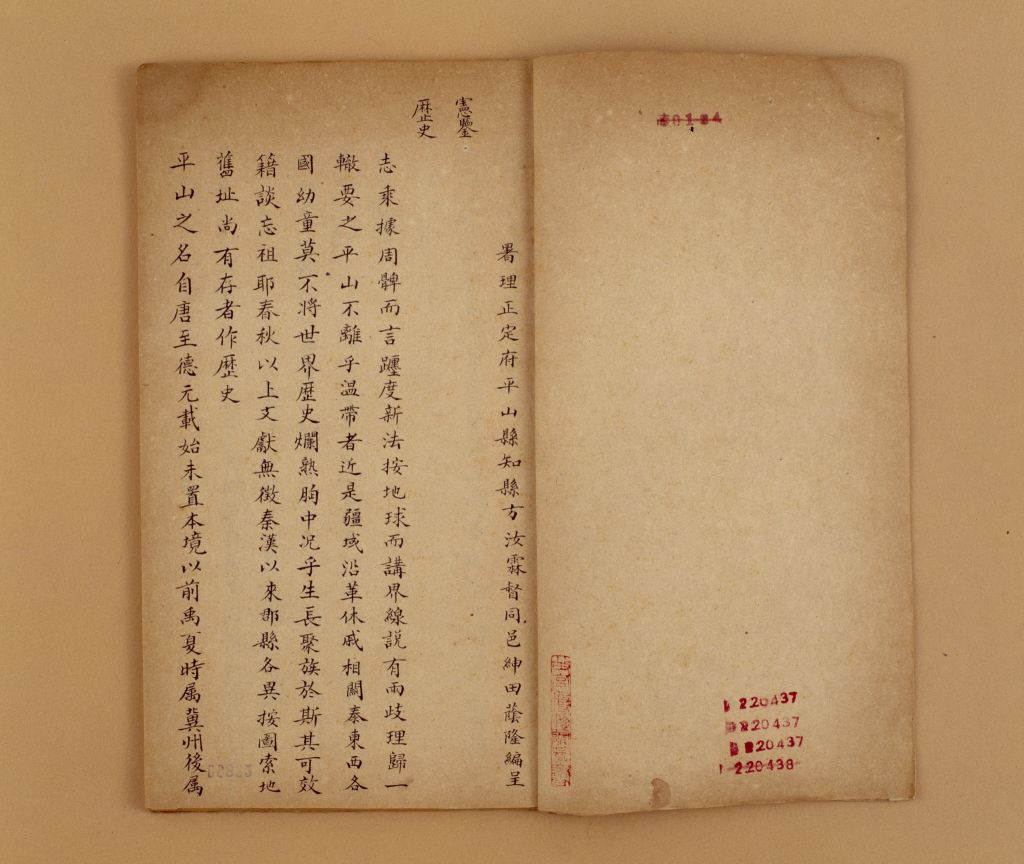 署理正定府平山縣知縣方汝霖督同邑紳田蔭隆編呈
憲鑒
歷史
志乘據周髀而言躔度新法按地球而講界線説有兩歧理歸一
轍要之平山不離乎温帶者近是疆域沿革休戚相關秦東西各
國幼童莫不將世界歷史爛熟胸中况乎生長聚族於斯其可效
籍談忘祖耶春秋以上文獻無徵秦漢以來郡縣各異按圖索地
舊址尚有存者作歷史
平山之名自唐至德元載始未置本境以前禹夏時属冀州後属
220437
220437
220437
220438